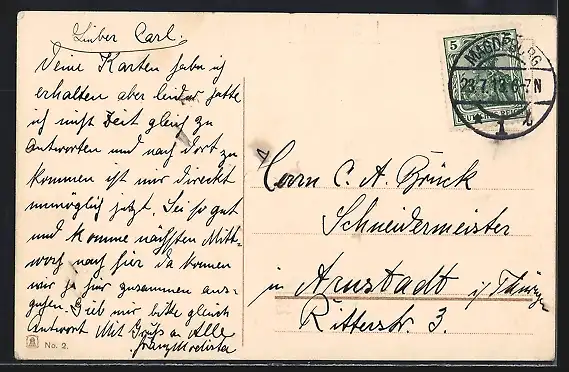 Lieber Carl.
Deine Karten habe ich
erhalten aber leider hatte
ich nicht Zeit gleich zu
antworten und nach dort zu
kommen ist mir direckt
unmöglich jetzt. Sei so gut
und komme nächsten Mitt-
woch nach hier da können
wir ja hier zusammen aus-
gehen. Gieb mir bitte gleich
Antwort. Mit Gruß a. Alle
Franz
No. 2.
5
MAGDEBURG
23.7.13. 6-7N
* 1 t
Herrn C. A. Brück
Schneidermeister
in Arnstadt i/Thüringen
Ritterstr. 3.